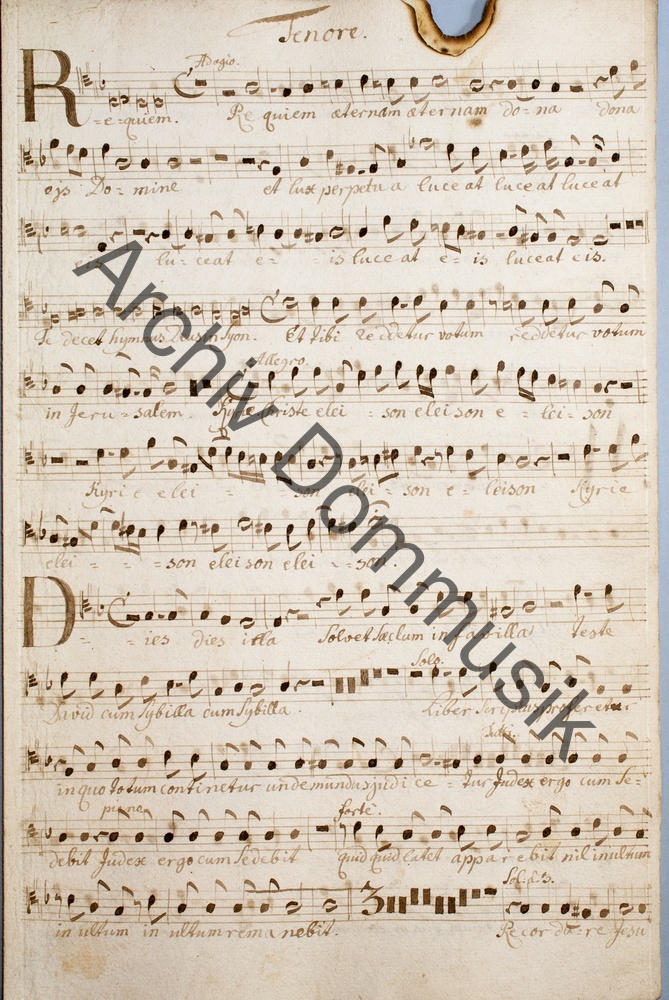 Tenore.
Adagio.
R = e = quiem. Re quiem æternam æternam do = na dona
ejs Do = mine et lux perpetua luceat luceat luceat
lu = ceat e = is luceat e = is luceat eis.
Te decet hymnus Deus in Syon. Et tibi reddetur votum reddetur votum
Allegro.
in Jeru = salem. Kyrie Christe elei = son eleison e = lei = son
Kyrie elei = son elei = son e = leison Kyrie
elei = = = son eleison elei = son.
D = = ies dies illa Solvet Sæclum in favilla teste
Solo.
David cum Sybilla cum Sybilla. Liber Scriptus proferetur
tutti.
in quo totum continetur unde mundus judice = tur Judex ergo cum Se =
piano forte.
debit Judex ergo cum Sedebit quid quid latet apparebit nil inultum
Sol. à 3.
3
in ultum in ultum remanebit. Recorda = re Jesu
Archiv Dommusik